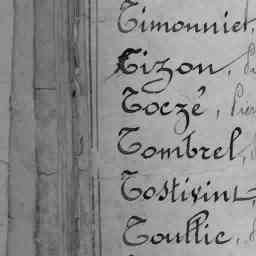 Timonnier,
Tizon,
Toczé,
Tombrel,
Tostivint,
Toullic,